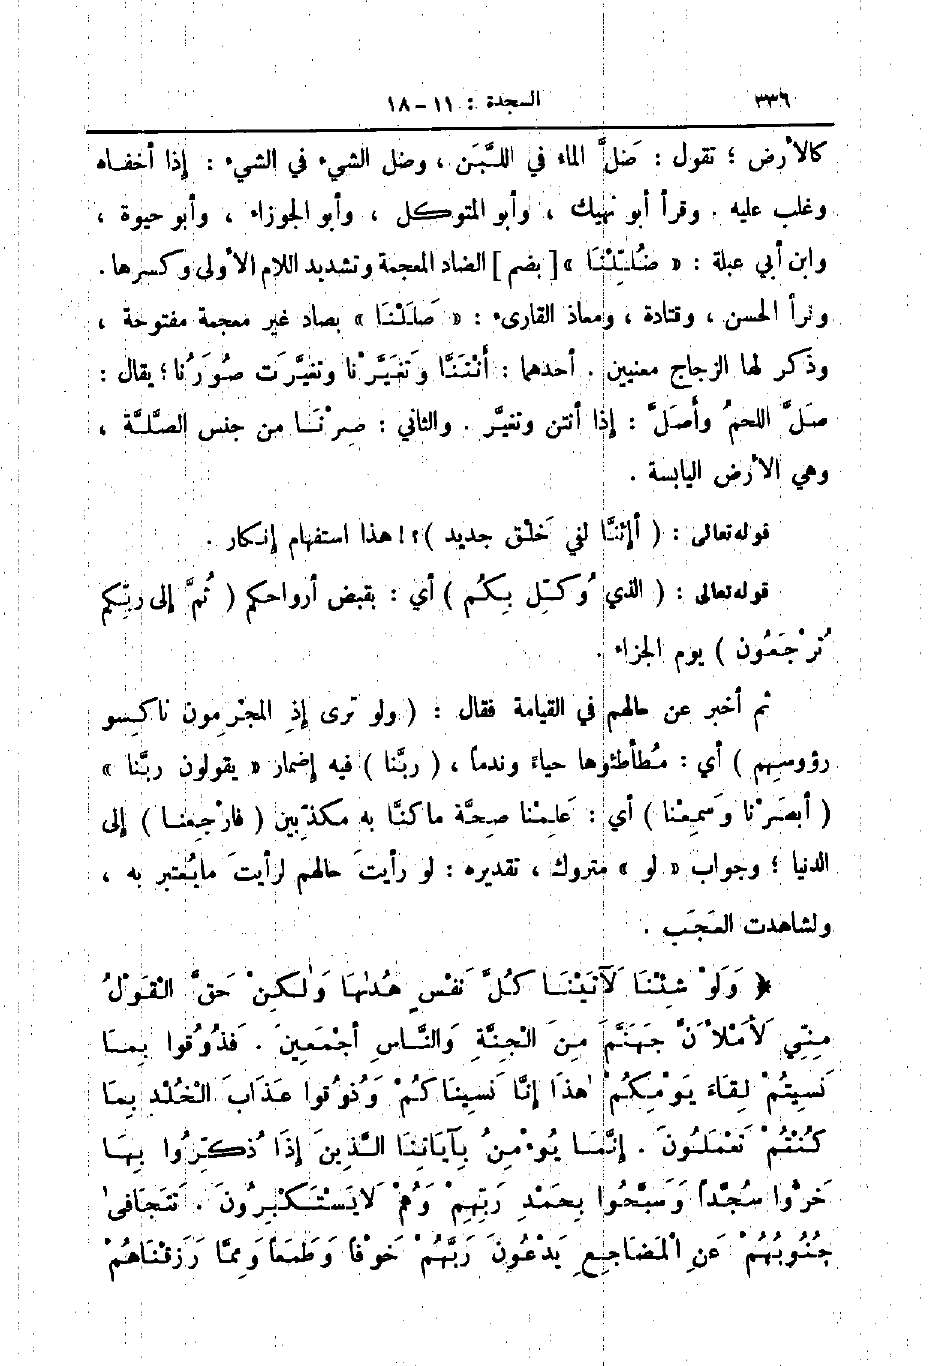 ٣٣٦ السجدة : ١١ – ١٨
كالأرض ؛ تقول : ضَلَّ الماء في اللَّبَن ، وضل الشيء في الشيء : إذا أخفاه
وغلب عليه . وقرأ أبو نهيك ، وأبو المتوكل ، وأبو الجوزاء ، وأبو حيوة ،
وابن أبي عبلة : « ضُلِّلْنَا » [ بضم ] الضاد المعجمة وتشديد اللام الأولى وكسرها .
وقرأ الحسن ، وقتادة ، ومعاذ القارىء : « صَلَلْنَا » بصاد غير معجمة مفتوحة ،
وذكر لها الزجاج معنيين . أحدهما : أَنْتَنَّا وَتَغَيَّرْنا وتغيَّرَت صُوَرُنا ؛ يقال :
صَلَّ اللحمُ وأَصَلَّ : إذا أنتن وتغيَّر . والثاني : صِرْنَا من جنس الصَّلَّة ،
وهي الأرض اليابسة .
قوله تعالى : ( أإنَّا لفي خَلْق جديد ) ؟! هذا استفهام إنكار .
قوله تعالى : ( الذي وُكِّل بِكُم ) أي : بقبض أرواحكم ( ثُمَّ إلى ربِّكم
تُرْجَعُون ) يوم الجزاء .
ثم أخبر عن حالهم في القيامة فقال : ( ولو ترى إذِ المجْرِمون ناكِسو
رؤوسهم ) أي : مُطأطئوها حياءً وندماً ، ( ربَّنا ) فيه إضمار « يقولون ربَّنا »
( أبصَرْنا وَسمِعْنا ) أي : عَلِمْنا صِحَّة ما كنَّا به مكذِّبين ( فارْجِعنا ) إلى
الدنيا ؛ وجواب « لو » متروك ، تقديره : لو رأيتَ حالهم لرأيتَ ما يُعتبر به ،
ولشاهدت العَجَب .
﴿ وَلَوْ شِئْنَا لَآتَيْنَا كُلَّ نَفْسٍ هُدٰىهَا وَلٰكِنْ حَقَّ الْقَوْلُ
مِنِّي لَأَمْلَأَنَّ جَهَنَّمَ مِنَ الْجِنَّةِ وَالنَّاسِ أَجْمَعِينَ . فَذُوقُوا بِمَا
نَسِيتُمْ لِقَاءَ يَوْمِكُمْ هٰذَا إِنَّا نَسِينَاكُمْ وَذُوقُوا عَذَابَ الْخُلْدِ بِمَا
كُنْتُمْ تَعْمَلُونَ . إِنَّمَا يُؤْمِنُ بِآيَاتِنَا الَّذِينَ إِذَا ذُكِّرُوا بِهَا
خَرُّوا سُجَّداً وَسَبَّحُوا بِحَمْدِ رَبِّهِمْ وَهُمْ لَا يَسْتَكْبِرُونَ . تَتَجَافىٰ
جُنُوبُهُمْ عَنِ الْمَضَاجِعِ يَدْعُونَ رَبَّهُمْ خَوْفاً وَطَمَعاً وَمِمَّا رَزَقْنَاهُمْ